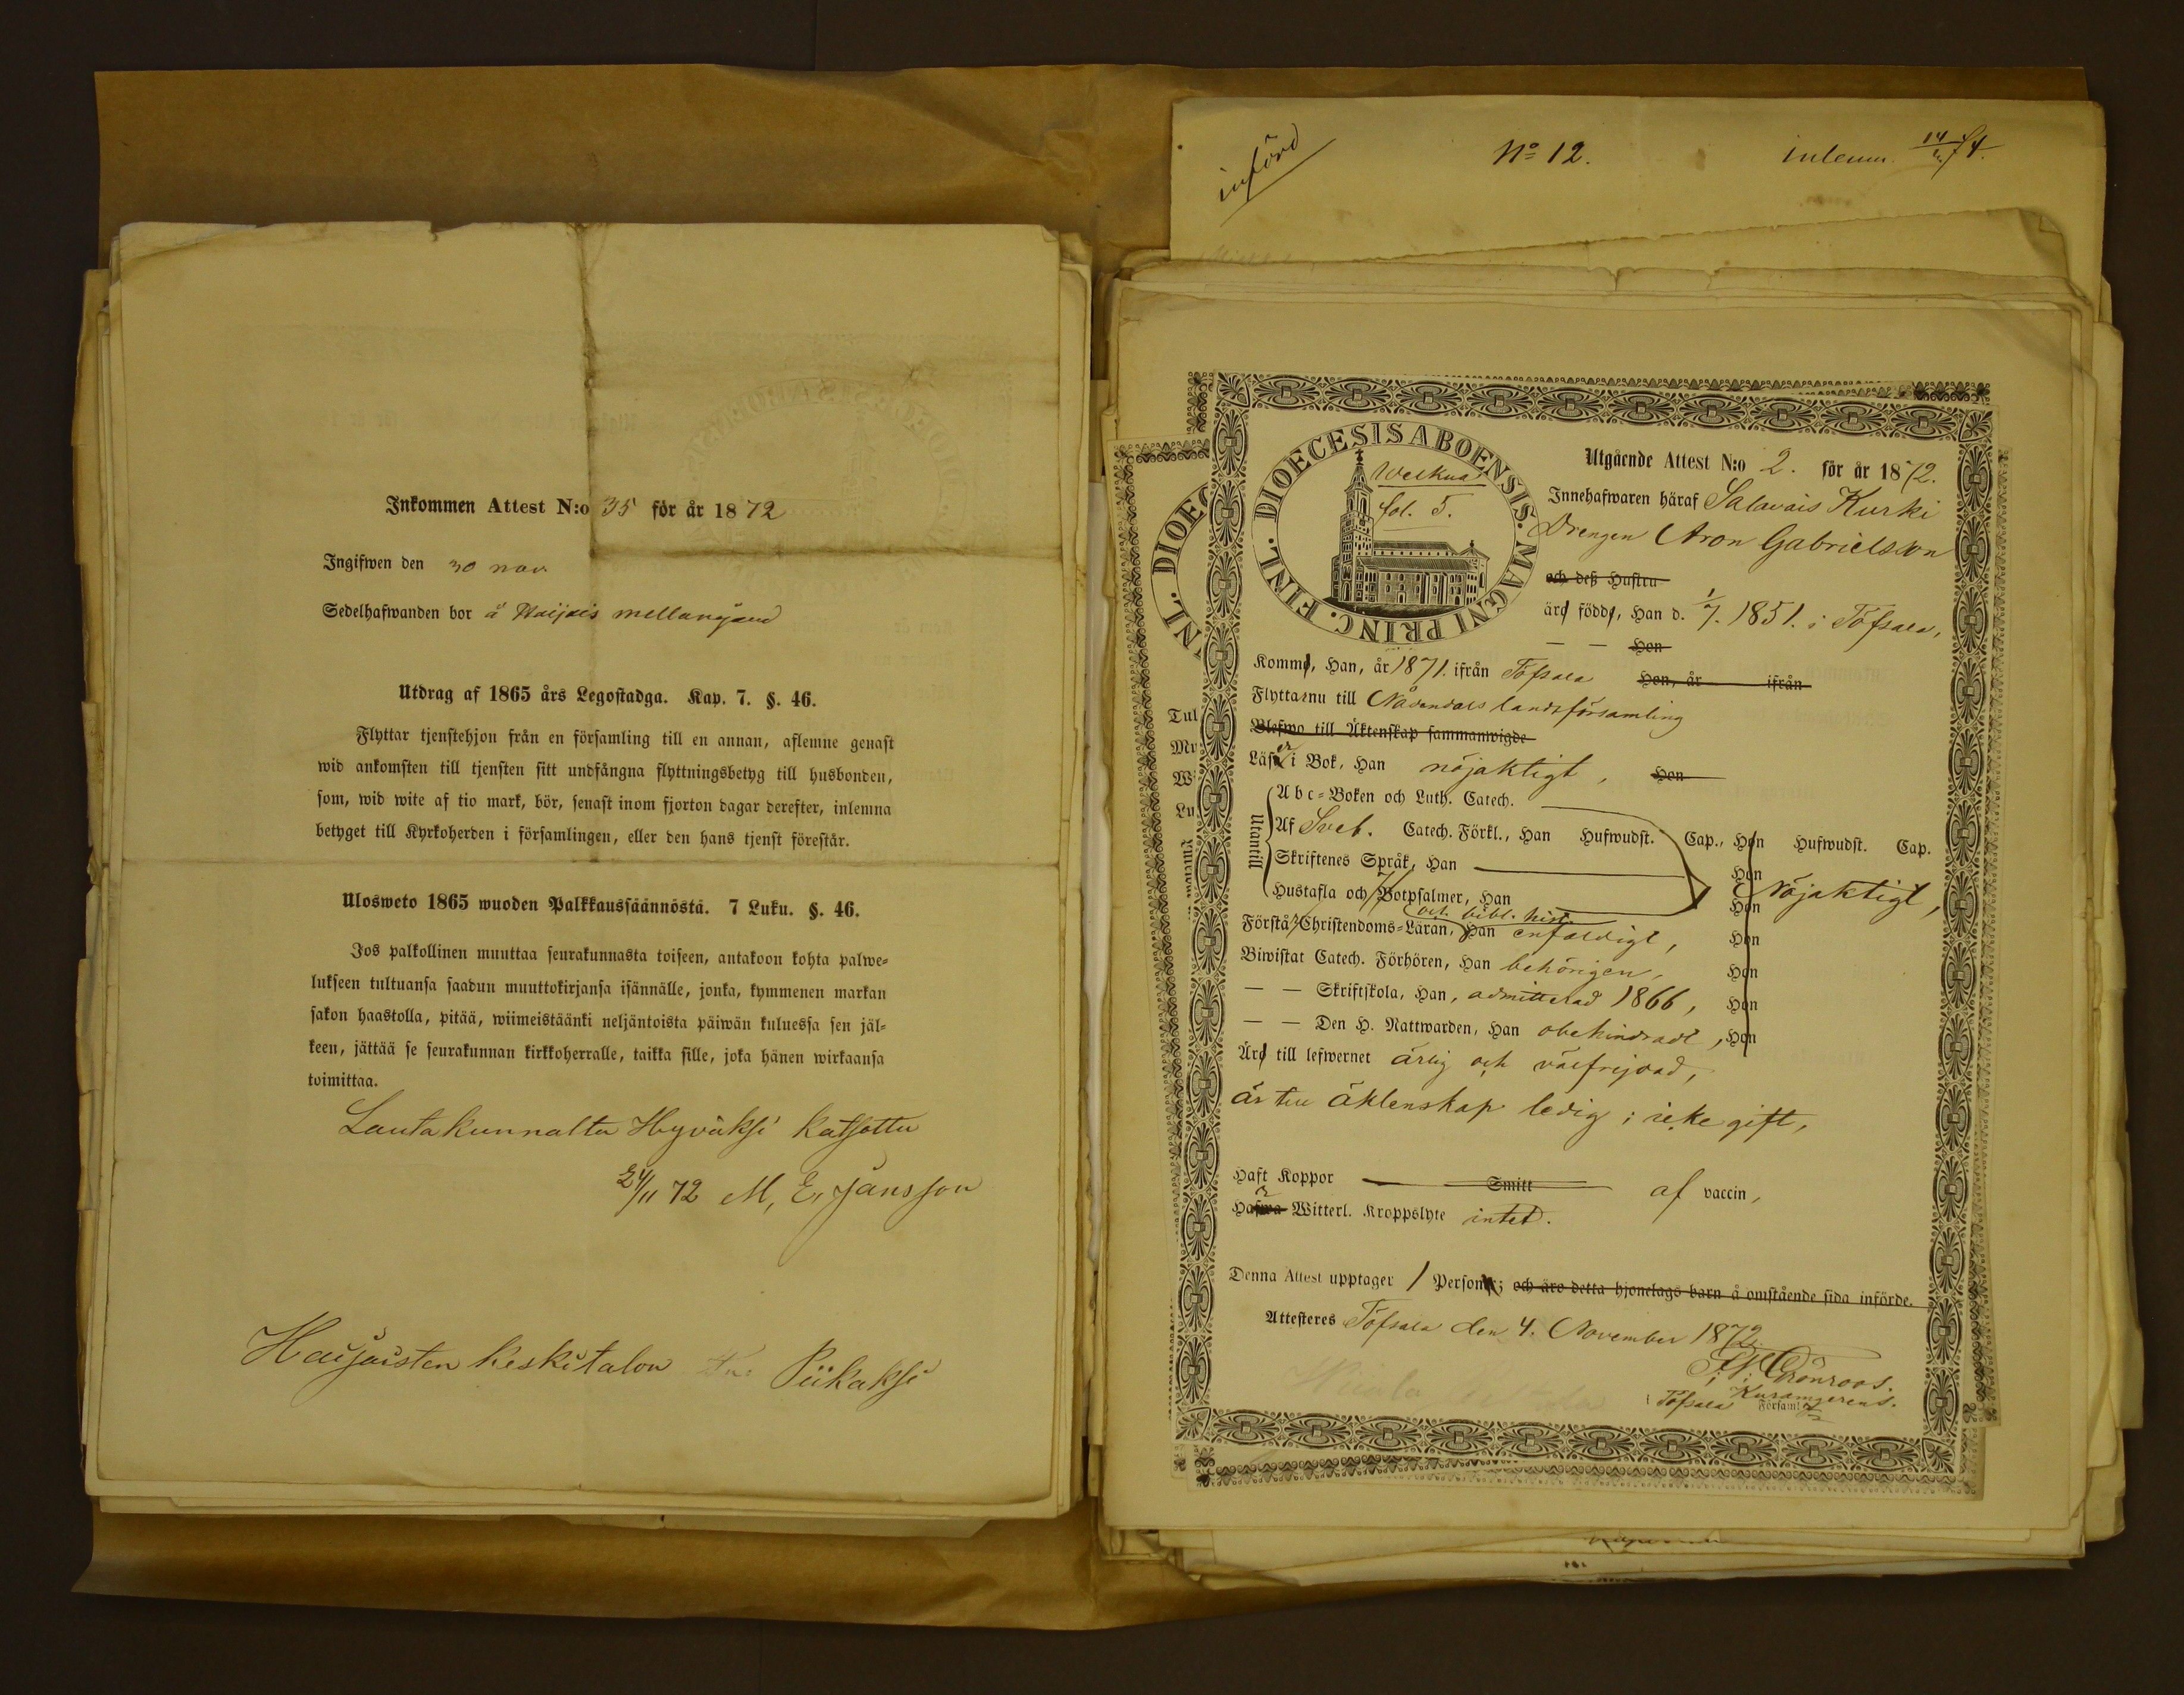 Inkommen Attest N:o 35 för år 1872
Ingifwen den 30 nov.
Sedelhafwanden bor å Haijais mellangård
Utdrag af 1865 års Legostadga. Kap. 7. §. 46.
Flyttar tjenstehjon från en församling till en annan, aflemne genast
wid ankomsten till tjensten sitt undfångna flyttningsbetyg till husbonden,
som, wid wite af tio mark, bör, senast inom fjorton dagar derefter, inlemna
betyget till Kyrkoherden i församlingen, eller den hans tjenst förestår.
Ulosweto 1865 wuoden Palkkaussäännöstä. 7 Luku. §. 46.
Jos palkollinen muuttaa seurakunnasta toiseen, antakoon kohta palwe-
lukseen tultuansa saadun muuttokirjansa isännälle, jonka, kymmenen markan
sakon haastolla, pitää, wiimeistäänki neljäntoista päiwän kuluessa sen jäl-
keen, jättää se seurakunnan kirkkoherralle, taikka sille, joka hänen wirkaansa
toimittaa.
Lautakunnalta Hyväksi katsottu
24/11 72 M, E, Jansson
Haijaisten keskitalon Piikaksi
införd
No 12.
inlemn. 74.
DIOECESIS ABOENSIS. MAGNI PRINC. FINL.
Welkua
fol. 5.
Utgående Attest N:o 2. för år 1872.
Innehafwaren häraf Salavais Kurki
Drengen Aron Gabrielsson
och deß Hustru
äro födde, Han d. 1/7. 1851. i Töfsala,
— — Hon
Komme, Han, år 1871. ifrån Töfsala Hon, år ifrån
Flytta nu till Nådendals landsförsamling
Blefwo till Äktenskap sammanwigde
Läser i Bok, Han nöjaktigt, Hon
Utantill
Abc-Boken och Luth. Catech.
Af Sveb. Catech. Förkl., Han Hufwudst. Cap., Hon Hufwudst. Cap.
Skriftenes Språk, Han Hon
Hustafla och Botpsalmer, Han Hon nöjaktigt,
och bibl. hist.
Förstå Christendoms-Läran, Han enfaldigt, Hon
Biwistat Catech. Förhören, Han behörigen, Hon
— — Skriftskola, Han, admitterad 1866, Hon
— — Den H. Nattwarden, Han obehindradt, Hon
Äro till lefwernet ärlig och välfrejdad,
är till äktenskap ledig; icke gift,
Haft Koppor Smitt af vaccin,
Hafwa Witterl. Kroppslyte intet.
Denna Attest upptager 1 Person; och äro detta hjonelags barn å omstående sida införde.
Attesteras Töfsala den 4. November 1872
Grönroos.
i Töfsala Församl.
DIOEC
NI.
Tul
Mu
Wi
Lu